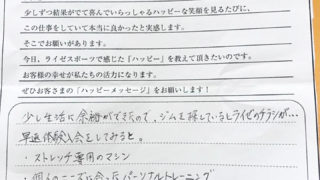 少しずつ結果がでて喜んでいらっしゃるハッピーな笑顔を見るたびに、
この仕事をしていて本当に良かったと実感します。
そこでお願いがあります。
今日、ライゼスポーツで感じた「ハッピー」を教えて頂きたいのです。
お客様の幸せが私たちの活力になります。
ぜひお客さまの「ハッピーメッセージ」をお願いします！
少し生活に余裕ができたので、ジムを探しているとライゼのチラシが…
早速体験入会をしてみると。
・ストレッチ専用のマシン
・個人のニーズに合ったパーソナルトレーニング